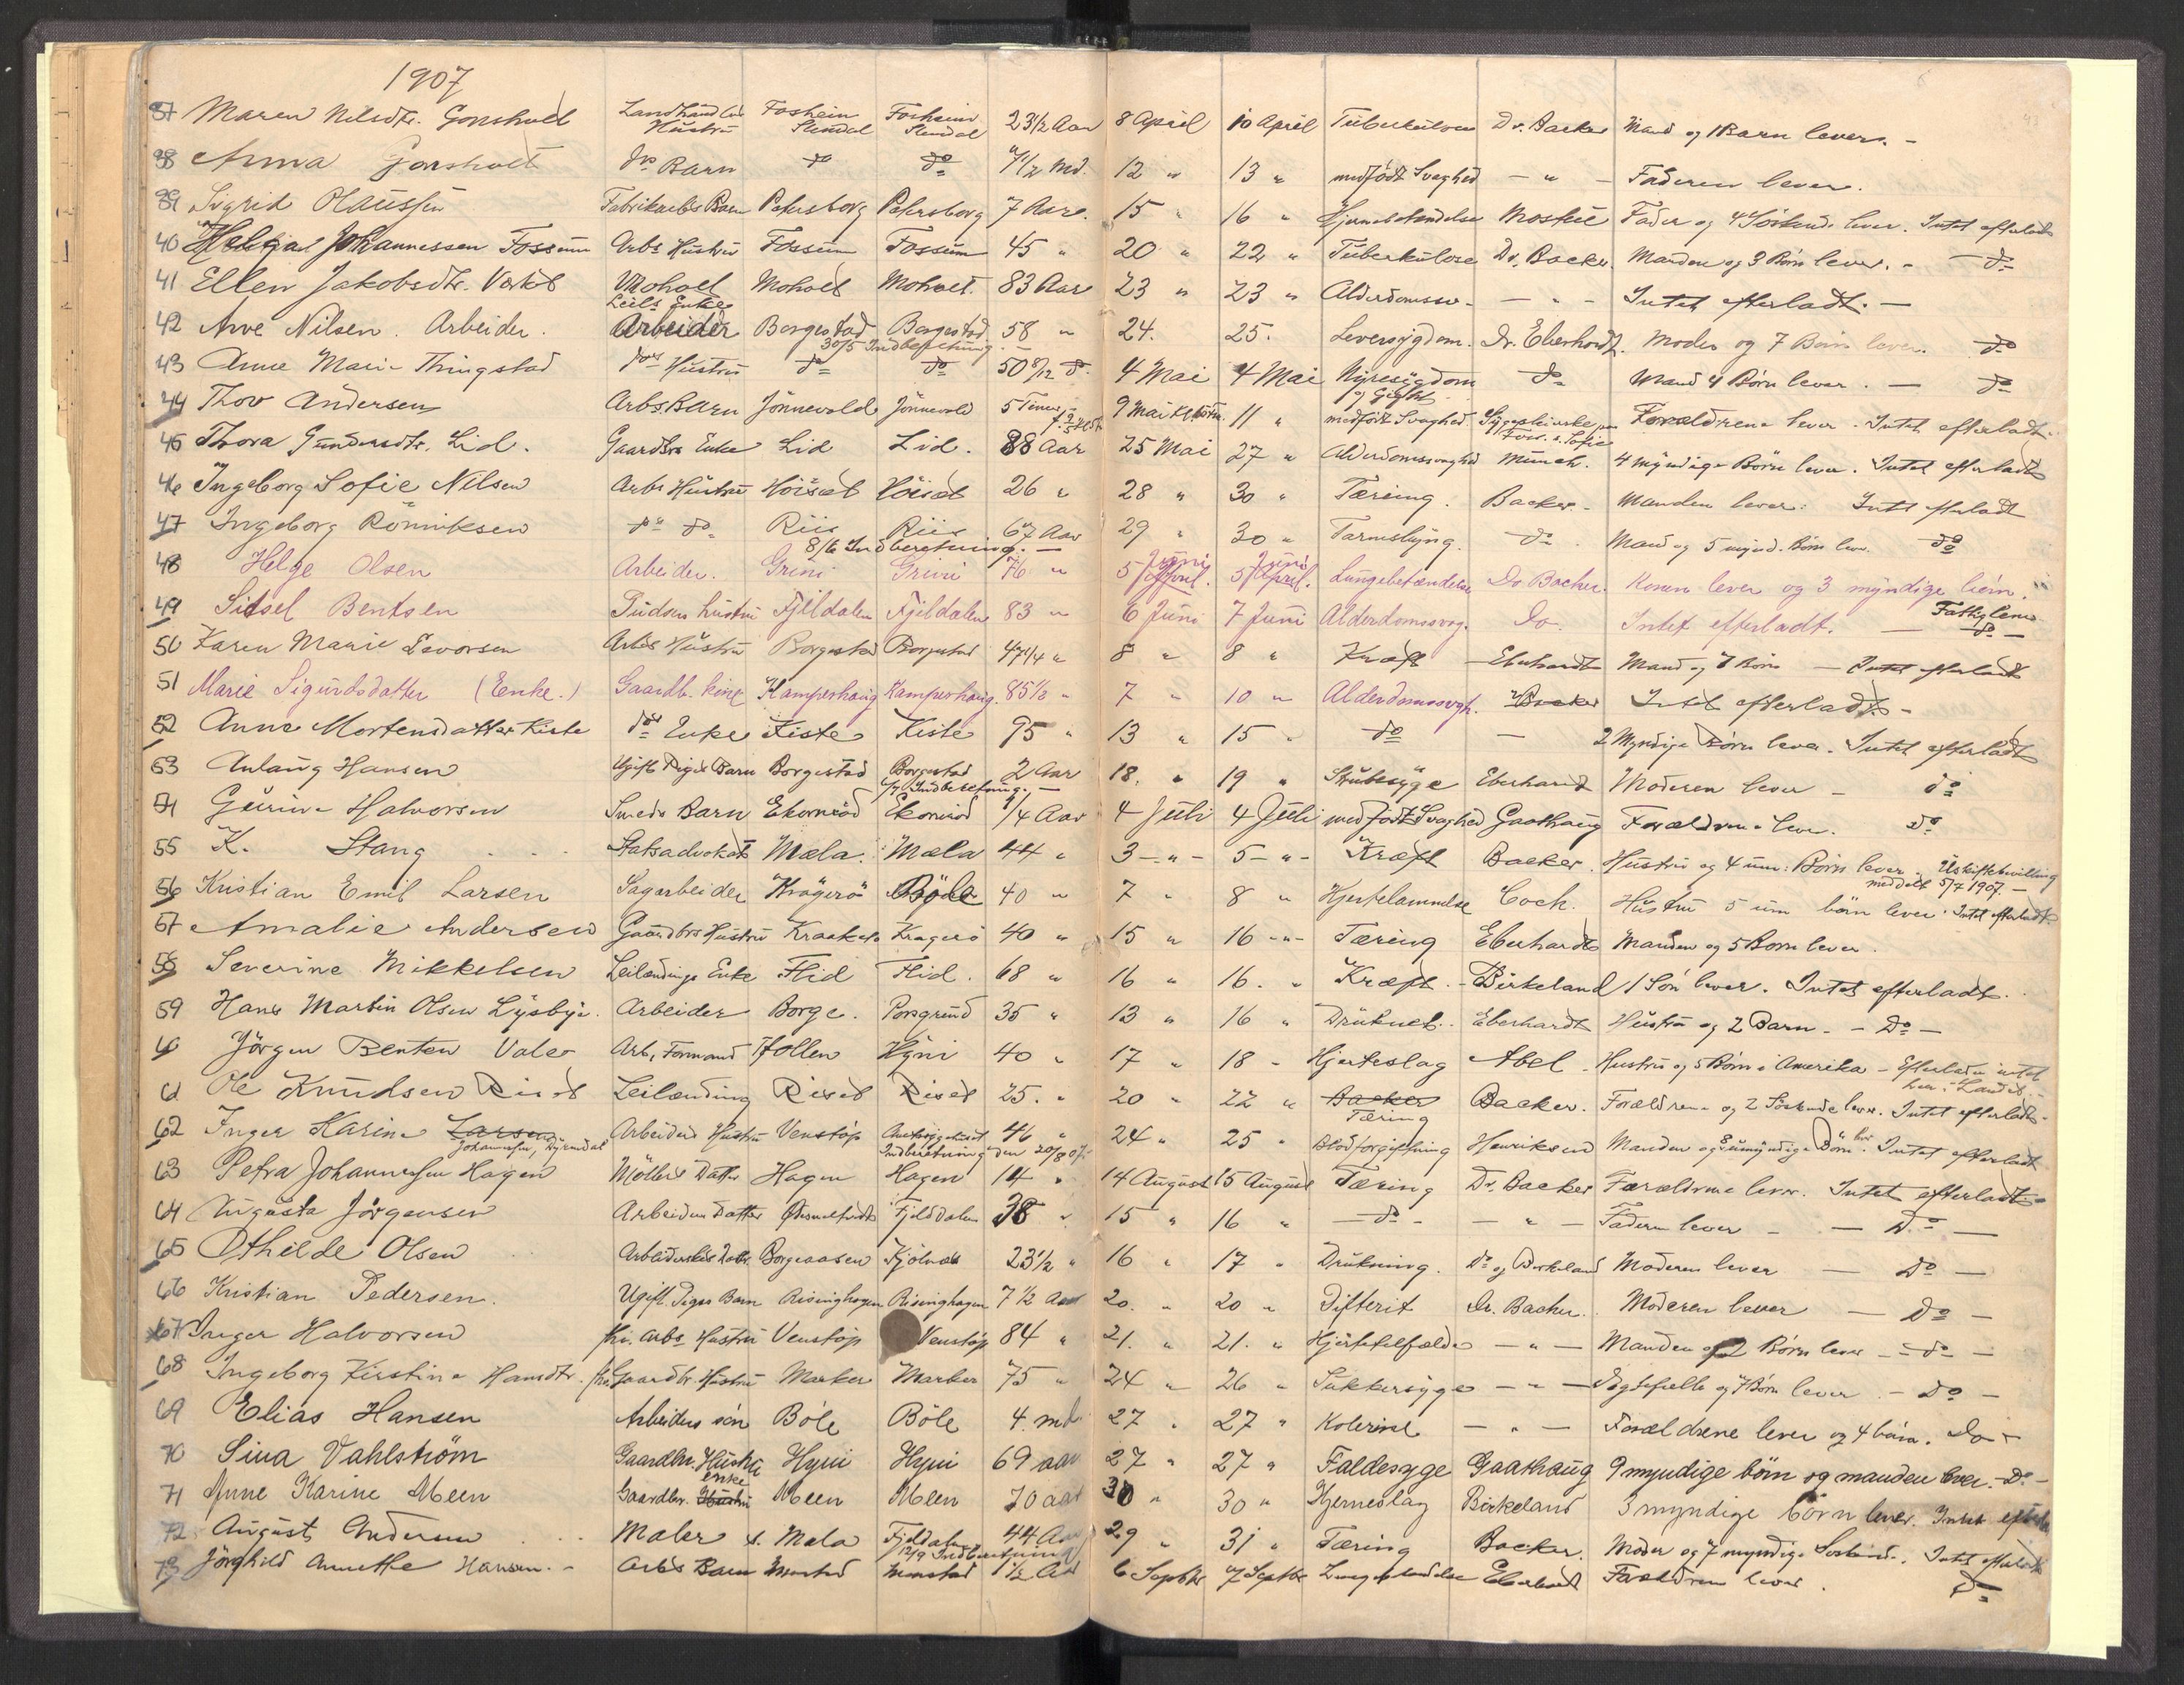 1907
37 Maren Nilsdtr. Gonsholt Landhandlers Hustru Fosheim Slemdal Fosheim Slemdal 23 1/2 Aar 8 April 10 April Tuberkulose Dr. Backer Mand og 1 Barn lever. -
38 Anna Gonsholt do Barn do do 7 1/2 Md. 12 " 13 " medfødt Svaghed - " - Faderen lever.
39 Sigrid Olaussen Fabrikarbs Barn Petersborg Petersborg 7 Aar. 15 " 16 " Hjernebetændelse Fader og 4 Söskende lever. Intet efterladt
40 Helga Johannessen Fossum Arbs Hustru Fossum Fossum 45 " 20 " 22 " Tuberkulose Dr. Backer. Manden og 3 Börn lever. - do
41 Ellen Jakobsdtr. Moholt Leil. Enke Moholt Moholt. 83 Aar 23 " 23 " Alderdomssv. - " - Intet efterladt. -
42 Arve Nilsen. Arbeider. Arbeider Borgestad Borgestad 58 " 24. 25. Leversygdom. Dr. Eberhardt. Moder og 7 Börn lever. do
30/5 Indberetning. -
43 Anne Marie Thingstad do Hustru do do 50 8/12 do. 4 Mai 4 Mai Nyresygdom og Gigt do Mand 4 Börn lever. - do
44 Thov Andersen Arbs. Barn Jönnevald Jönnevald 5 Timer 9 Mai 11 " medfödt Svaghed. Forældrene lever. Intet efterladt.
45 Thora Gundersdtr. Lid. Gaardbr. Enke Lid Lid. 88 Aar 25 Mai 27 " Alderdomssvaghed Munch. 4 myndige Börn lever. Intet efterladt
46 Ingeborg Sofie Nilsen Arbs Hustru Höiset Höiset 26 " 28 " 30 " Tæring. Backer - Manden lever: Intet efterladt
47 Ingeborg Röniniksen do do Riis Riis 67 Aar 29 " 30 " Tarmslyng. do Mand og 5 mynd. Börn lever do
8/6 Indberetning. -
48 Helge Olsen Arbeider. Grini Grini 76 " 5 Juni 5 Juni Lungebetændelse Dr Backer. Konen lever og 3 myndige börn. "
49 Sidsel Bentsen Hustru Fjeldalen Fjeldalen 83 " 6 Juni 7 Juni Alderdomssvag. Do. Intet efterladt. - Fattiglem
50 Karen Marie Levorsen Arbs Hustru Borgestad Borgestad 47 1/4 " 8 " 8 " Kræft Eberhardt Mand og 7 Börn - Intet efterladt
51 Marie Sigurdsdatter (Enke.) Gaardb. Kamperhaug Kamperhaug. 85 1/2 " 7 " 10 " Alderdomssvgh. Backer Intet efterladt. -
52 Anne Mortensdatter Kiste do Enke Kiste Kiste 95 " 13 " 15 " do - 2 Myndige Börn lever. Intet efterladt
53 Anlaug Hansen Ugift Piges Barn Borgestad Borgestad 2 Aar 18. " 19 " Strubesyge Eberhardt Moderen lever - do
6/7 Indberetning. -
54 Gurine Halvorsen Smeds Barn Ekornröd Ekornröd 1/4 Aar 4 Juli 4 Juli medfödt Svaghed Gaathaug Forældrene lever. do
55 K. Stang Statsadvokat Mæla. Mæla 44 " 3 - " - 5 - " - Kræft Backer. Hustru og 4 um: Börn lever. Uskiftebevilling meddelt 5/7 1907. -
56 Kristian Emil Larsen Sagarbeider Kragerö Böle 40 " 7 " 8 " Hjertelammelse Coch. Hustru 5 um börn lever. Intet efterladt.
57 Amalie Andersen Gaardbrs Hustru Kragerö 40 " 15 " 16 - " - Tæring Eberhardt Manden og 5 Börn lever.
58 Severine Mikkelsen Leilændings Enke Flid Flid. 68 " 16 " 16. " Kræft. - Birkeland 1 Sön lever. Intet efterladt.
59 Hans Martin Olsen Lysbye. Arbeider Borge. Porsgrund 35 " 13 " 16 " Druknet. Eberhardt Hustru og 2 Barn - - Do -
60 Jörgen Benten Valer Arb, Formand Hollen Hyni 40 " 17 " 18 - Hjerteslag Abel - Hustru og 5 Börn i Amerika - Efterlader intet her i Landet.
61 Ole Knudsen Riset Leilænding Riset Riset 25. " 20 " 22 " Backer Tæring Backer. Forældrene og 2 Söskende lever. Intet efterladt.
62 Inger Karine Larsen Johannesen, Arbeiders Hustru Venstöp 46 " 24 " 25 " Blodforgiftning Henriksen Manden og 8 umyndige Börn lev. Intet efterladt
Indberetning den 20/8 07.
63 Petra Johannessen Hagen Möllers Datter Hagen Hagen 14 " 14 August 15 August Tæring Dr. Backer Forældrene lever. Intet efterladt -
64 Augusta Jörgensen Arbeiders Datter Fjeldalen 38 " 15 " 16 " - do - - " - Faderen lever - - Do -
65 Othilde Olsen Borgeaasen Fjölnas 23 1/2 " 16 " 17 " Drukning. do og Birkeland Moderen lever - Do -
66 Kristian Pedersen. Ugift. Piges Barn Risinghagen Risinghagen 7 1/2 Aar 20. " 20 " Difterit Dr. Backer. Moderen lever - Do -
67 Inger Halvorsen fhv. Arbs Hustru Venstöp Venstöp 84 " 21. " 21. " Hjertetilfælde - " - Manden og 2 Börn lever - do -
68 Ingeborg Kirstine Hansdtr. fhv. Gaardbr. Hustru Marker Marker 75 " 24 " 26 " Sukkersyge - " - Ægtefælle og 7 Börn lever - Do -
69 Elias Hansen Arbeiders sön Böle Böle 4. md 27 " 27 " Kolerine - " - Forældrene lever og 4 börn. Do -
70 Sina Vahlstrøm Gaardbr. Hustru Hyni Hyni 69 aar 27 " 27 " Faldesyge Gaathaug 9 myndige börn og manden lever. - Do -
71 Anne Karine Meen Gaardbr. Hustru enke Meen Meen 70 aar 30 " 30 " Hjerneslag Birkeland 3 myndige börn lever. Intet efterla
72 August Andersen Maler n. Mæla Fjeldalen 44 Aar 29 " 31 " Tæring Backer. Moder og 7 myndige Söskende. Intet efterladt
12/9 Indberetning
73 Jörghild Annethe Hansen. - Arbs Barn Menstad Menstad 1 1/2 Aar 6 Septbr 7 Septbr Lungebetændelse Eberhardt Forældrene lever. do